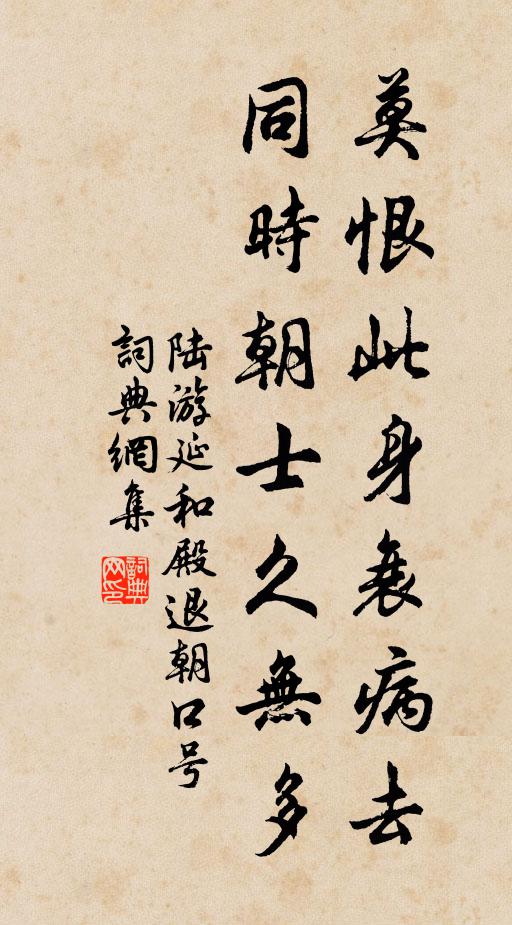 莫恨此身衰病去
同時朝士久無多
陆游延和殿退朝口号
詞典網集
詞典网印